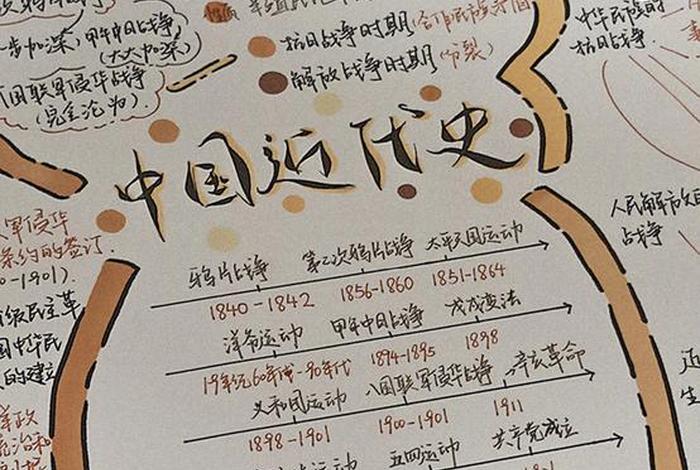 抗日战争时期(合作民族矛盾
一步加深,甲午中日战争
(大大加深)
解放战争时期(分裂)
国联军侵华战争
(完全沦为).
中华民族的
抗日战争.
中国近代史
人民解放
战争
军侵华
条约的签订.
-1901).
级民主革
国中华民
的建立
鸦片战争 第二次鸦片战争 太平天国运动
1840-1842 1856-1860 1851-1864
洋务运动 甲午中日战争 戊戌变法
19年纪60年代-90年代 1894-1895 1898
义和团运动 八国联军侵华战争 辛亥革命
1898-1901 1900-1901 1911
五四运动 共产党成立